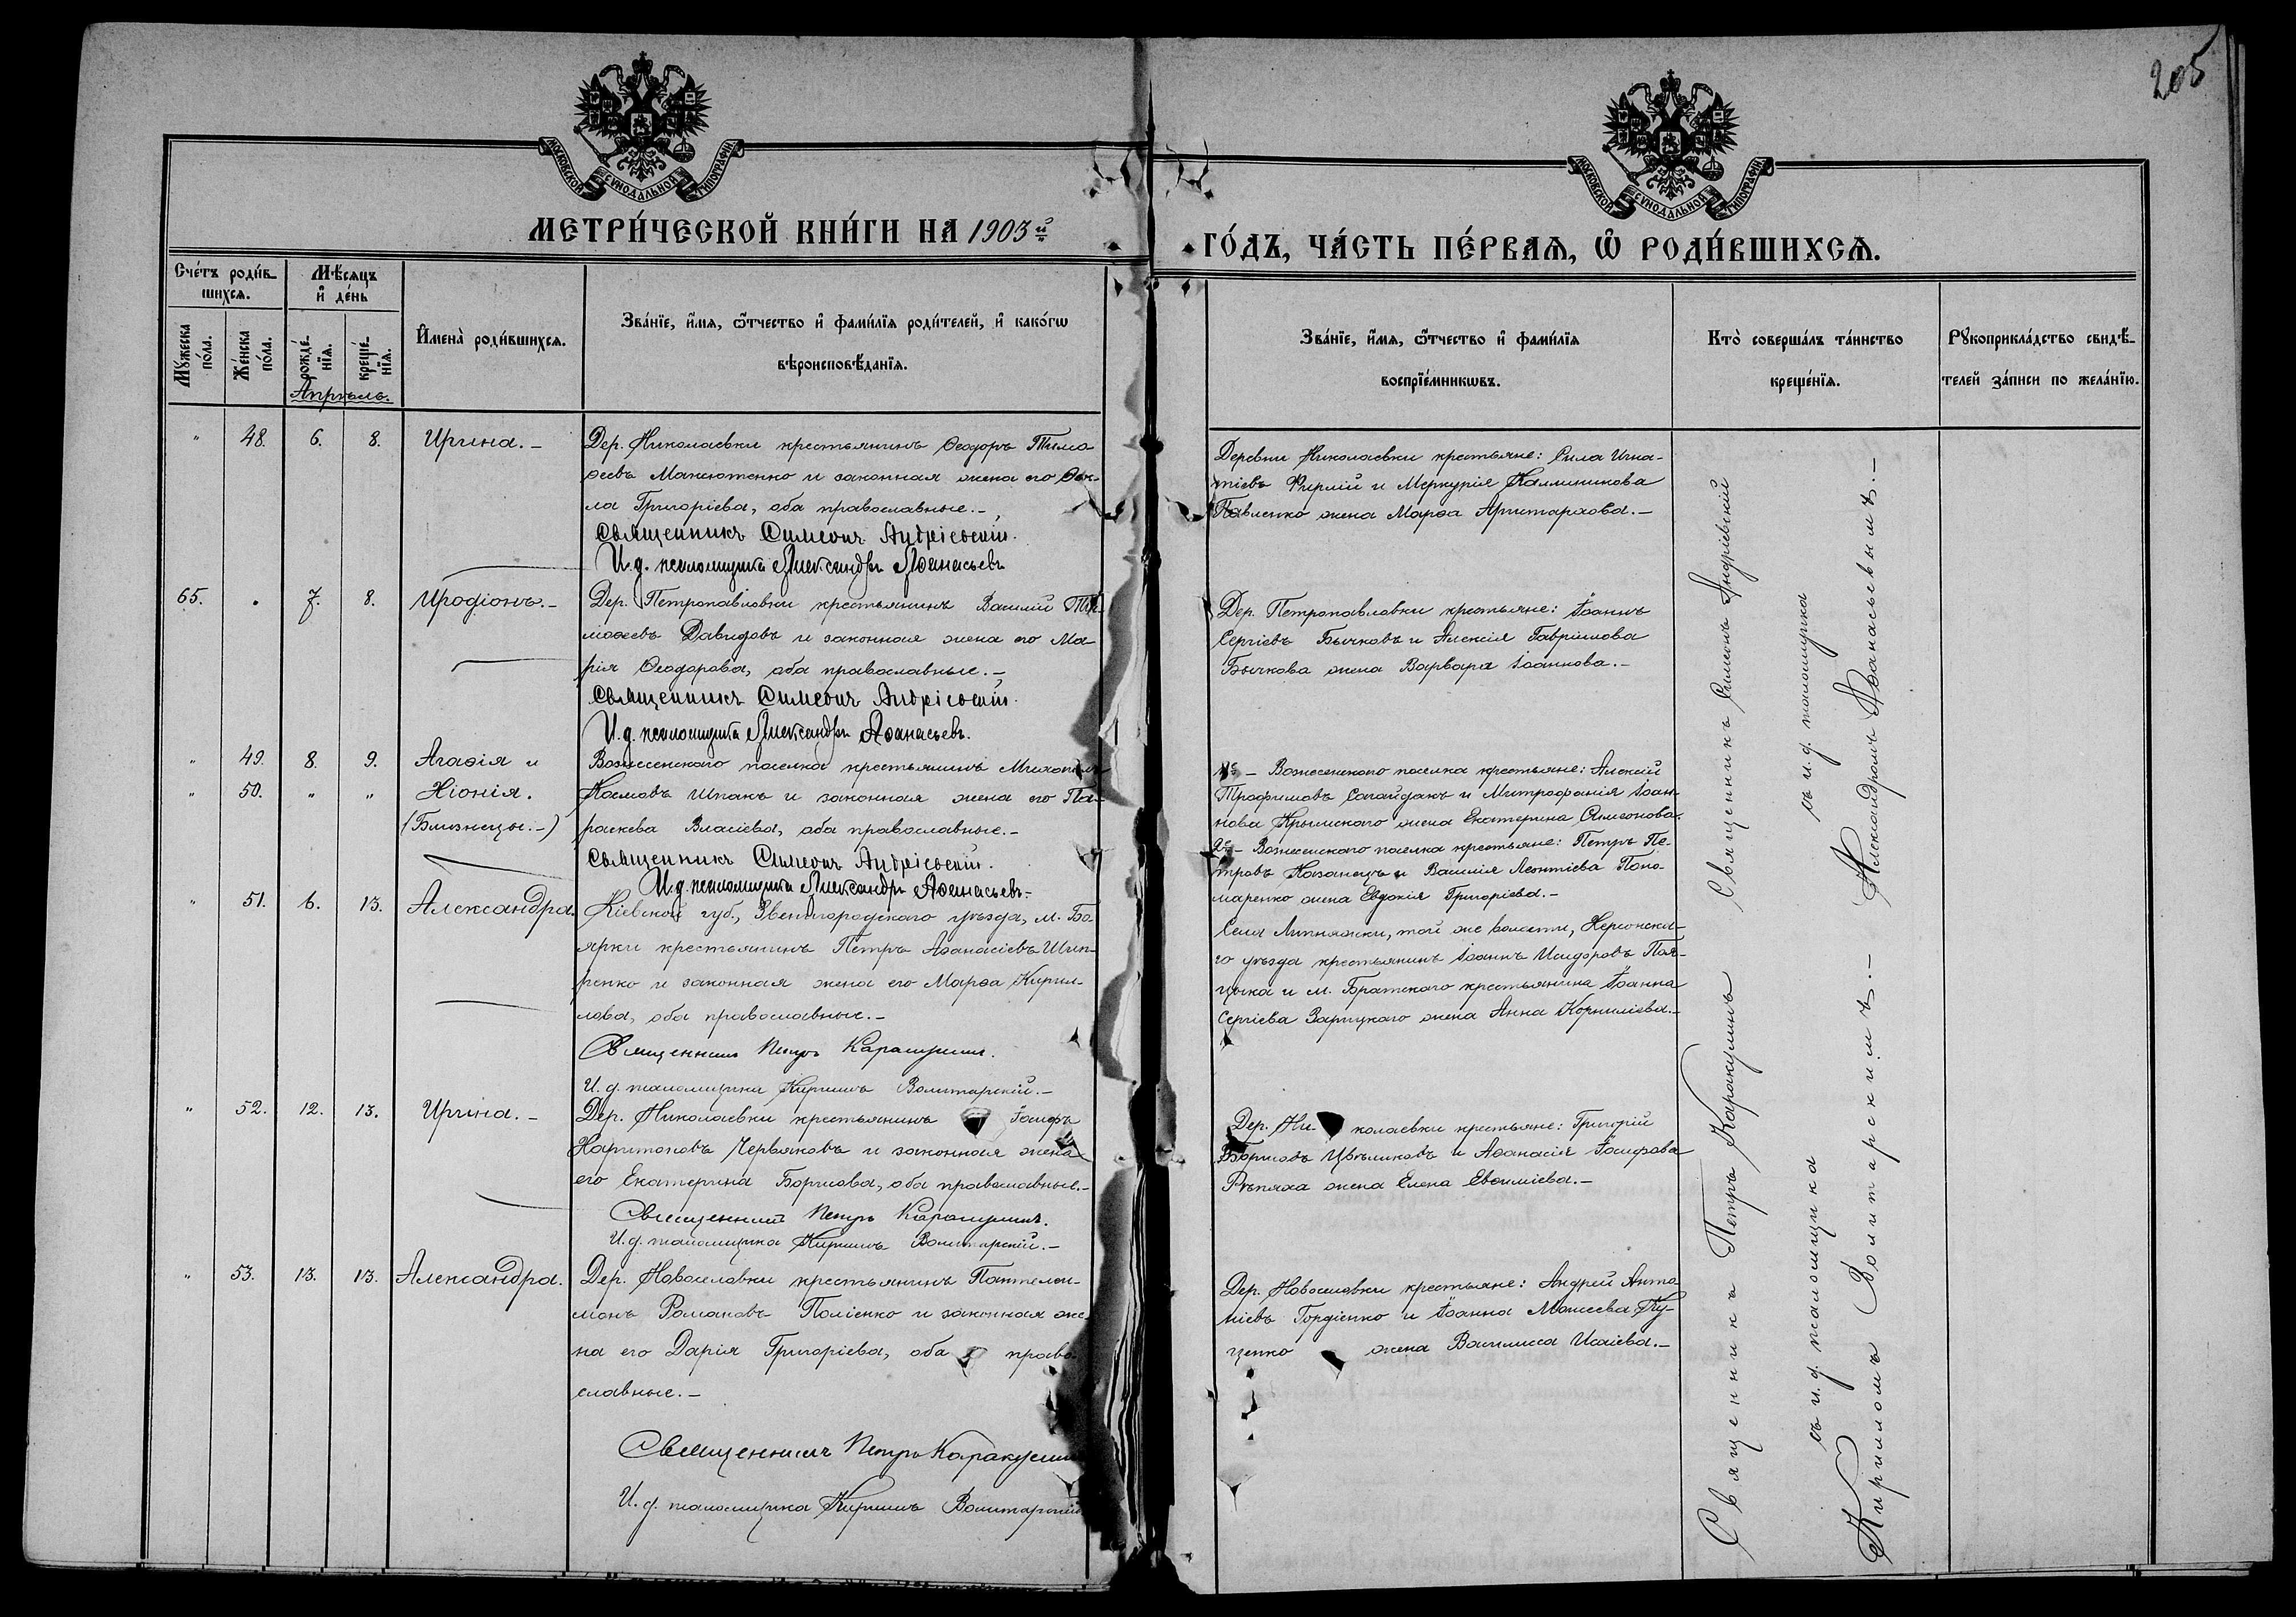 205
МОСКОВСКОЙ СѴНОДАЛЬНОЙ ТИПОГРАФІИ
МОСКОВСКОЙ СѴНОДАЛЬНОЙ ТИПОГРАФІИ
МЕТРИ́ЧЕСКОЙ КНИ́ГИ НА 1903й
ГО́ДЪ, ЧА́СТЬ ПЕ́РВАЯ, Ѡ РОДИ́ВШИХСѦ.
Сче́тъ роди́в-
шихсѧ.
Мѣ́сѧцъ
и҆ де́нь
Мꙋжеска по́ла.
Же́нска по́ла.
рожде́-
нїѧ.
креще́-
нїѧ.
И҆мена̀ роди́вшихсѧ.
Зва́нїе, и҆́мѧ, ѻ҆́тчество и҆ фами́лїѧ роди́телей, и҆ како́гѡ
вѣроисповѣ́данїѧ.
Зва́нїе, и҆́мѧ, ѻ҆́тчество и҆ фами́лїѧ
воспрїе́мникѡвъ.
Кто̀ соверша́лъ та́инство
креще́нїѧ.
Рꙋкоприкла́дство свидѣ́-
телей за́писи по жела́нїю.
Апрѣль.
" 48. 6. 8. Ирина.-
Дер. Николаевки крестьянинъ Ѳеодоръ Тимо
ѳеевъ Максютенко и законная жена его Ѳек-
ла Григоріева, оба православные.-
Священникъ Симеонъ Андріевскій.
И.д. псаломщика Александръ Аѳанасьевъ
Деревни Николаевки крестьяне: Сила Игна-
тіевъ и Меркурія Каллиникова
Павленко жена Марѳа Аристархова.-
65. " 7. 8. Иродіонъ.-
Дер. Петропавловки крестьянинъ Василій Ти-
моѳеевъ Давидовъ и законная жена его Ма-
рія Ѳеодорова, оба православные.-
Священникъ Симеонъ Андріевскій.
И.д. псаломщика Александръ Аѳанасьевъ.
Дер. Петропавловки крестьяне: Іоаннъ
Сергіевъ Бычковъ и Алексія Гавріилова
Бычкова жена Варвара Іоаннова.-
" 49. 8. 9. Агаѳія и
" 50. " " Хіонія.
(Близнецы.-)
Вознесенскаго поселка крестьянинъ Михаилъ
Космовъ Шпакъ и законная жена его Па-
раскева Власіева, оба православные.-
Священникъ Симеонъ Андріевскій.
И.д. псаломщика Александръ Аѳанасьевъ.-
1й - Вознесенскаго поселка крестьяне: Алексій
Трофимовъ Сагайдакъ и Митрофанія Іоан-
нова Крымскаго жена Екатерина Симеонова.
2й - Вознесенскаго поселка крестьяне: Петръ Пе-
тровъ Казанецъ и Василія Леонтіева Поно-
маренко жена Евдокія Григоріева.-
" 51. 6. 13. Александра.
Кіевской губ., Звенигородскаго уѣзда, м. Бо-
ярки крестьянинъ Петръ Аѳанасіевъ
ренко и законная жена его Марѳа Кирил-
лова, оба православные.-
Священникъ Петръ Каракулинъ.
И.д. псаломщика Кириллъ Волитарскій.-
Села Липняжки, той же волости, Херсонска-
го уѣзда крестьянинъ Іоаннъ Исидоровъ
и м. Братскаго крестьянина Іоанна
Сергіева Зарицкаго жена Анна Корниліева.-
" 52. 12. 13. Ирина.-
Дер. Николаевки крестьянинъ Іосифъ
Харитоновъ Червяковъ и законная жена
его Екатерина Борисова, оба православные.-
Священникъ Петръ Каракулинъ.
И.д. псаломщика Кириллъ Волитарскій.-
Дер. Ни- колаевки крестьяне: Григорій
Борисовъ Цвѣтковъ и Аѳанасія Іосифова
Рѣпяха жена Елена Евѳиміева.-
" 53. 13. 13. Александра.
Дер. Новоселовки крестьянинъ Пантелеи-
монъ Романовъ Поліенко и законная же-
на его Дарія Григоріева, оба право-
славные.-
Священникъ Петръ Каракулинъ
И.д. псаломщика Кириллъ Волитарскій
Дер. Новоселовки крестьяне: Андрей Анто-
ніевъ Гордіенко и Іоанна Моисеева Ку-
ценко жена Василисса Исаіева.-
Священникъ Симеонъ Андріевскій
съ и.д. псаломщика
Александромъ Аѳанасьевымъ.-
Священникъ Петръ Каракулинъ
съ и.д. псаломщика
Кирилломъ Волитарскимъ.-